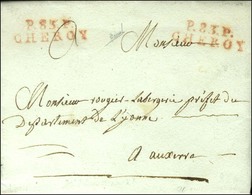 P.83.P. P.83.P.
CHEROY CHEROY
Monsieur
Monsieur rougier-Labergerie préfet du
département de l'yonne
a auxerre